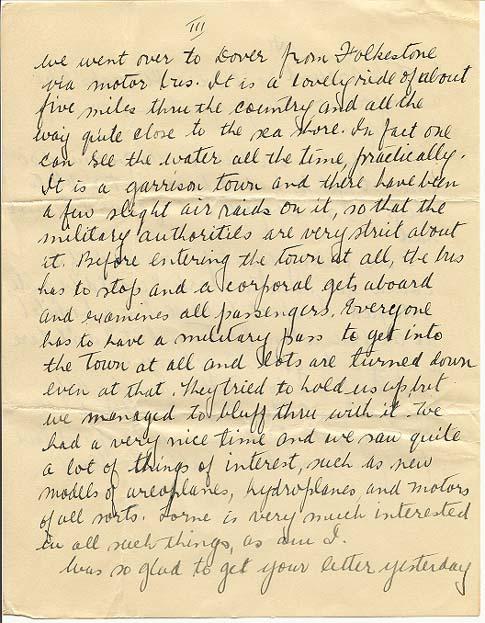 III
we went over to Dover from Folkestone
via motor bus. It is a lovely ride of about
five miles thru the country and all the
way quite close to the sea shore. In fact one
can see the water all the time, practically.
It is a garrison town and there have been
a few slight air raids on it, so that the
military authorities are very strict about
it. Before entering the town at all, the bus
has to stop and a corporal gets aboard
and examines all passengers. Everyone
has to have a military pass to get into
the town at all and lots are turned down
even at that. They tried to hold us up, but
we managed to bluff thru with it. We
had a very nice time and we saw quite
a lot of things of interest, such as new
models of areoplanes, hydroplanes, and motors
of all sorts. Lorne is very much interested
in all such things, as am I.
Was so glad to get your letter yesterday